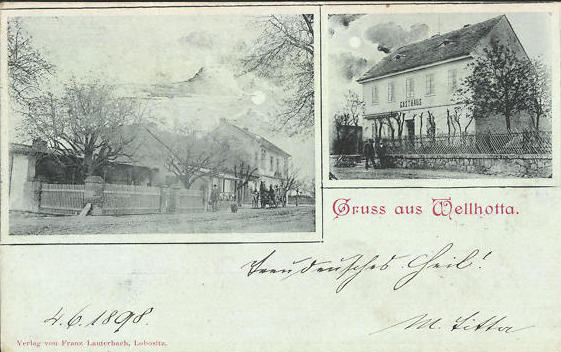 GASTHAUS
Gruss aus Wellhotta.
treudeutsches Heil!
4.6.1898.
M. Titta
Verlag von Franz Lauterbach, Lobositz.